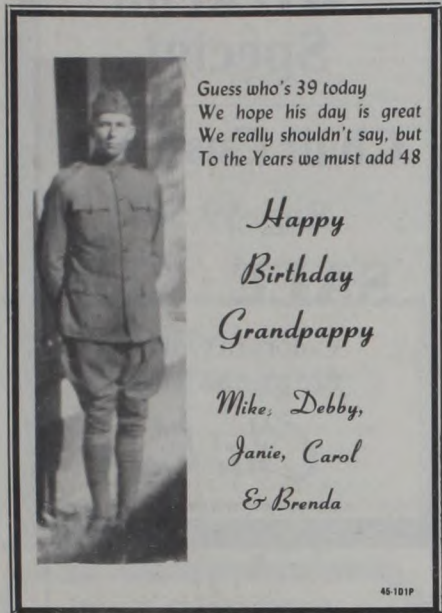 Guess who's 39 today
We hope his day is great
We really shouldn't say, but
To the Years we must add 48
Happy
Birthday
Grandpappy
Mike, Debby,
Janie, Carol
& Brenda
46-1D1P